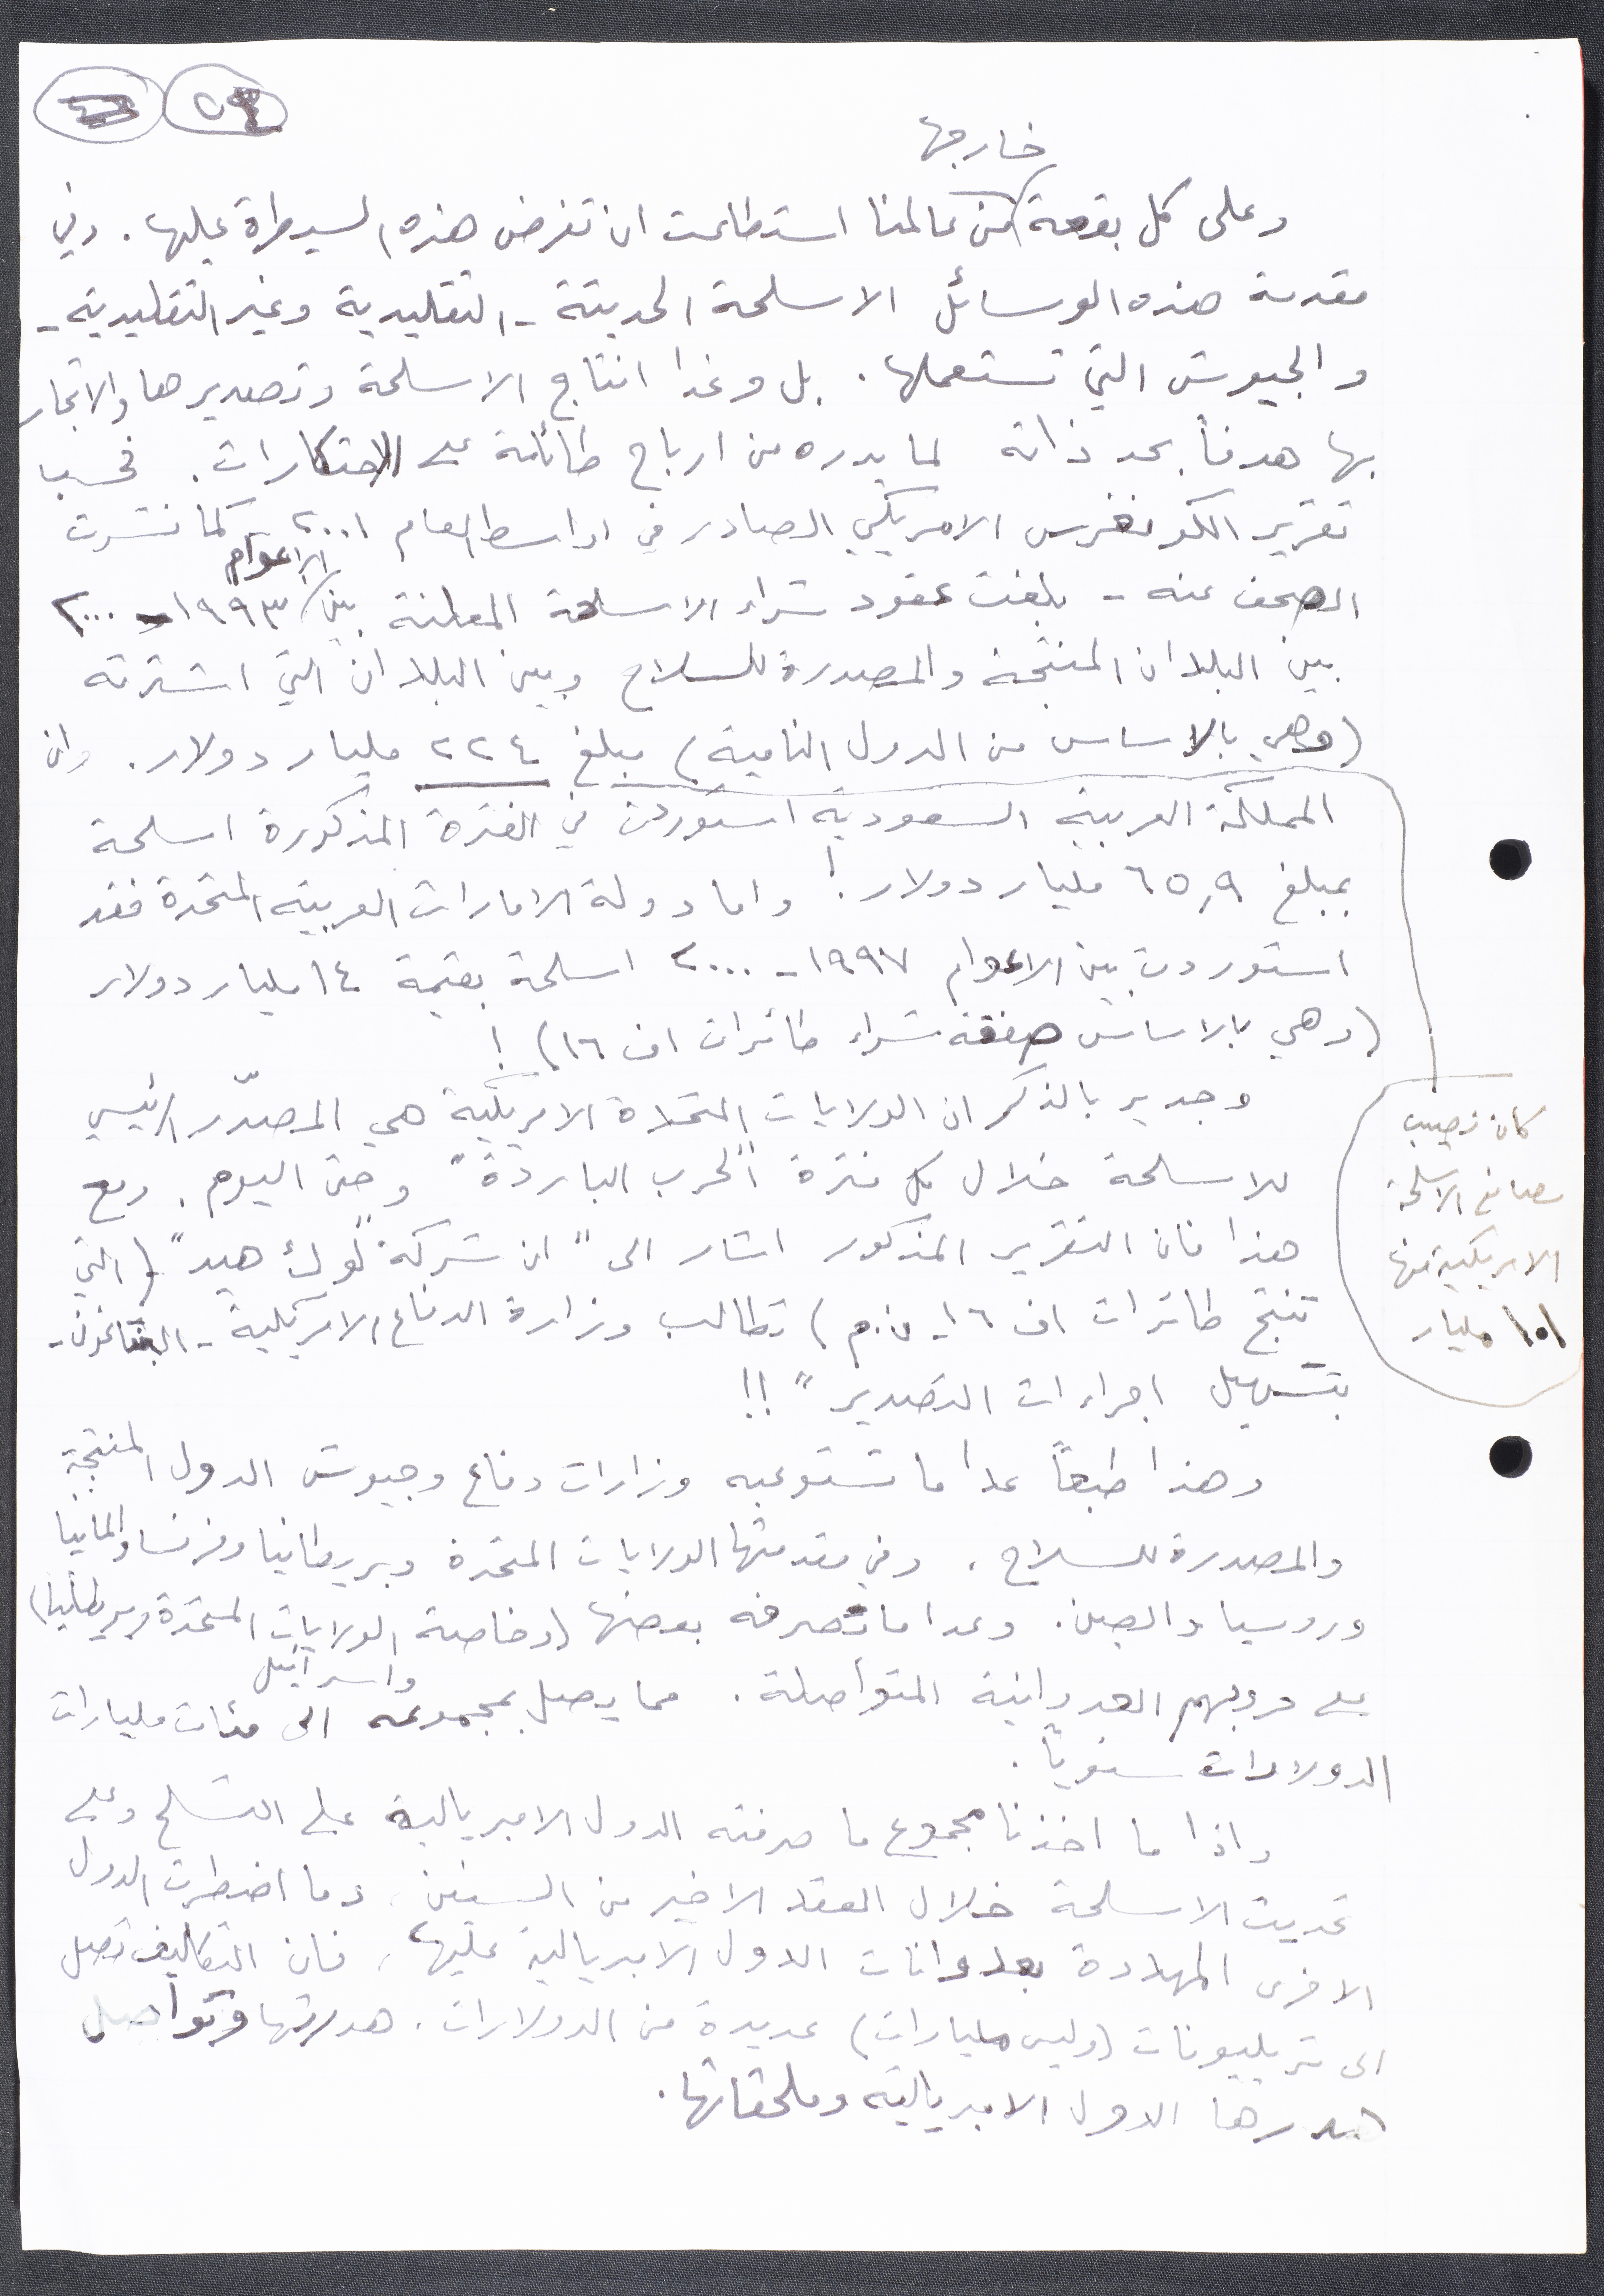 خارجها
وعلى كل بقعة من عالمنا استطاعت ان تفرض هذه السيطرة عليها. وفي
مقدمة هذه الوسائل الاسلحة الحديثة - التقليدية وغير التقليدية -
والجيوش التي تستعملها. بل وغدا انتاج الاسلحة وتصديرها والاتجار
بها هدفاً بحد ذاته لما يدره من ارباح طائلة على الاحتكارات. فحسب
تقرير الكونغرس الامريكي الصادر في اواسط العام ٢٠٠١ - كما نشرت
الصحف عنه - بلغت عقود شراء الاسلحة المعلنة بين الاعوام ١٩٩٣ - ٢٠٠٠
بين البلدان المنتجة والمصدرة للسلاح وبين البلدان التي اشترته
(وهي بالاساس من الدول النامية) مبلغ ٢٢٤ مليار دولار. وان
المملكة العربية السعودية استوردت في الفترة المذكورة اسلحة
بمبلغ ٦٥,٩ مليار دولار! واما دولة الامارات العربية المتحدة فقد
استوردت بين الاعوام ١٩٩٧ - ٢٠٠٠ اسلحة بقيمة ١٤ مليار دولار
(وهي بالاساس صفقة شراء طائرات اف ١٦)!
وجدير بالذكر ان الولايات المتحدة الامريكية هي المصدّر الرئيسي
للاسلحة خلال كل فترة "الحرب الباردة" وحتى اليوم. ومع
هذا فان التقرير المذكور اشار الى "ان شركة "لوك هيد" (التي
تنتج طائرات اف ١٦ - ن.م) تطالب وزارة الدفاع الامريكية - البنتاغون -
بتسهيل اجراءات التصدير"!!
كان نصيب
مصانع الاسلحة
الامريكية منها
١٠١ مليار
وهذا طبعاً عدا ما تستوعبه وزارات دفاع وجيوش الدول المنتجة
والمصدرة للسلاح. وفي مقدمتها الولايات المتحدة وبريطانيا وفرنسا والمانيا
وروسيا والصين. وعدا ما تصرفه بعضها (وخاصة الولايات المتحدة وبريطانيا)
واسرائيل
على حروبهم العدوانية المتواصلة. مما يصل بمجموعه الى مئات مليارات
الدولارات سنوياً.
واذا ما اخذنا مجموع ما صرفته الدول الامبريالية على التسلح وعلى
تحديث الاسلحة خلال العقد الاخير من السنين، وما اضطرت الدول
الاخرى المهددة بعدوانات الدول الامبريالية عليها، فان التكاليف تصل
الى تريليونات (وليس مليارات) عديدة من الدولارات. هدرتها وتواصل
هدرها الدول الامبريالية وملحقاتها.